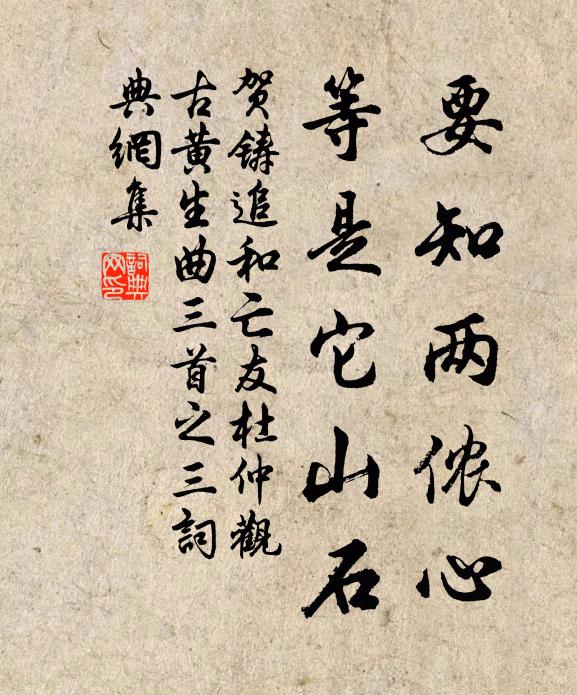 要知两侬心
等是它山石
贺鑄追和亡友杜仲觀
古黄生曲三首之三詞
典網集
詞典
网印